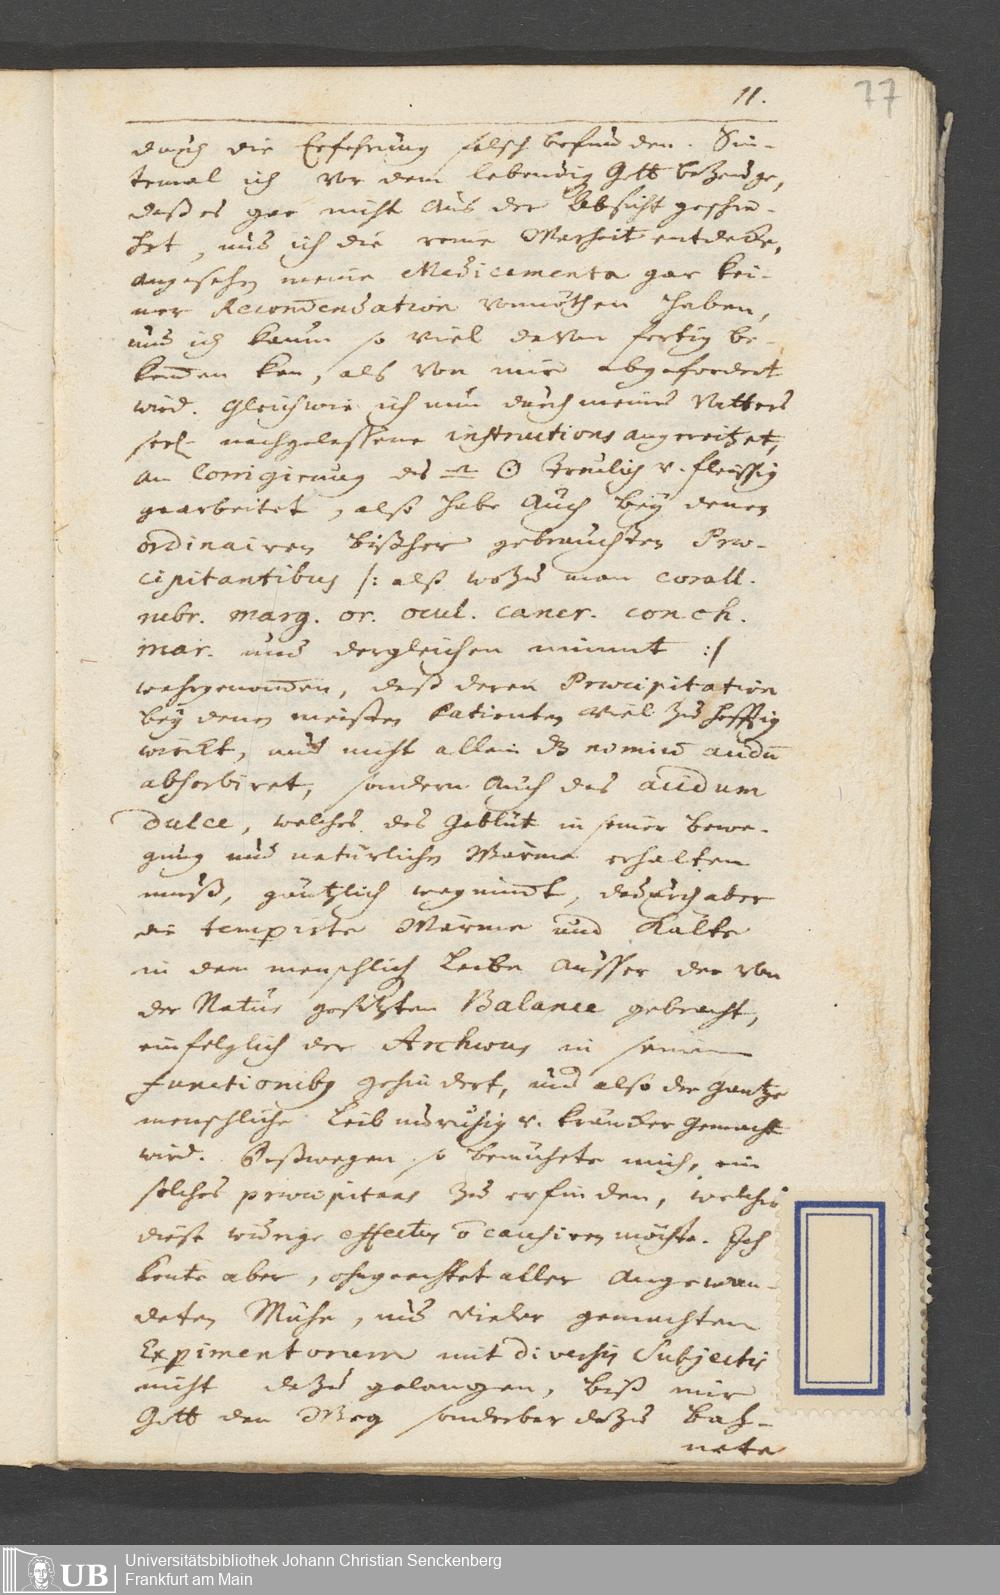 11.
77
durch die Erfahrung falsch befunden. Sin-
temal ich vor dem lebendig Gott bezeuge,
daß es gar nicht aus der Absicht geschie-
het, und ich die reine Warheit entdecke,
angesehen meine Medicamenta gar kei-
ner Recom̄endation vonnöthen haben,
und ich kaum so viel davon fertig be-
kom̄en kan, als von mir abgefordert
wird. Gleichwie ich nun durch meines Vatters
seel. nachgelassene instructions angereitzet,
an Corrigirung des ☉ treulich v. fleissig
gearbeitet, also habe auch bey denen
ordinairen bißher gebrauchten Præ-
cipitantibus /: alß wozu man corall.
rubr. marg. or. ocul. cancr. conch.
mar. und dergleichen nimmt :/
wahrgenom̄en, daß deren Præcipitation
bey denen meisten Patienten viel zu hefftig
würkt, und nicht allein nimiū acidū
absorbiret, sondern auch das acidum
dulce, welches das Geblüt in seiner bewe-
gung und natürlichen Wärme erhalten
muß, gäntzlich wegnim̄t, dadurch aber
die temperirte Wärme und Kälte
in dem menschlich Leibe ausser der von
der Natur gesetzten Balance gebracht,
einfolglich der Archæus in seinen
functionibus gehindert, und also der gantze
menschliche Leib unruhig v. kräncker gemacht
wird. Deßwegen so bemühete mich, ein
solches præcipitans zu erfinden, welches
diese widrige effectus ō causiren möchte. Ich
konte aber, ohngeachtet aller angewan-
deten Mühe, und vieler gemachten
Experimentorum mit diversis Subjectis
nicht dazu gelangen, biß mir
Gott den Weg sonderbar dazu bah-
nete
UB
Universitätsbibliothek Johann Christian Senckenberg
Frankfurt am Main